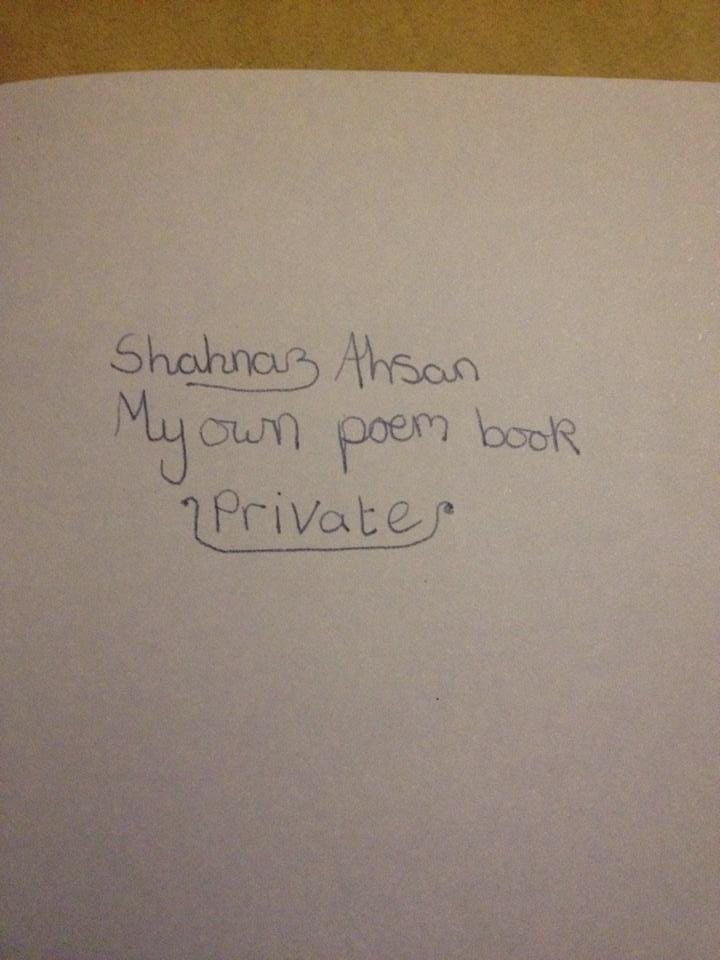 Shahnaz Ahsan
My own poem book
Private